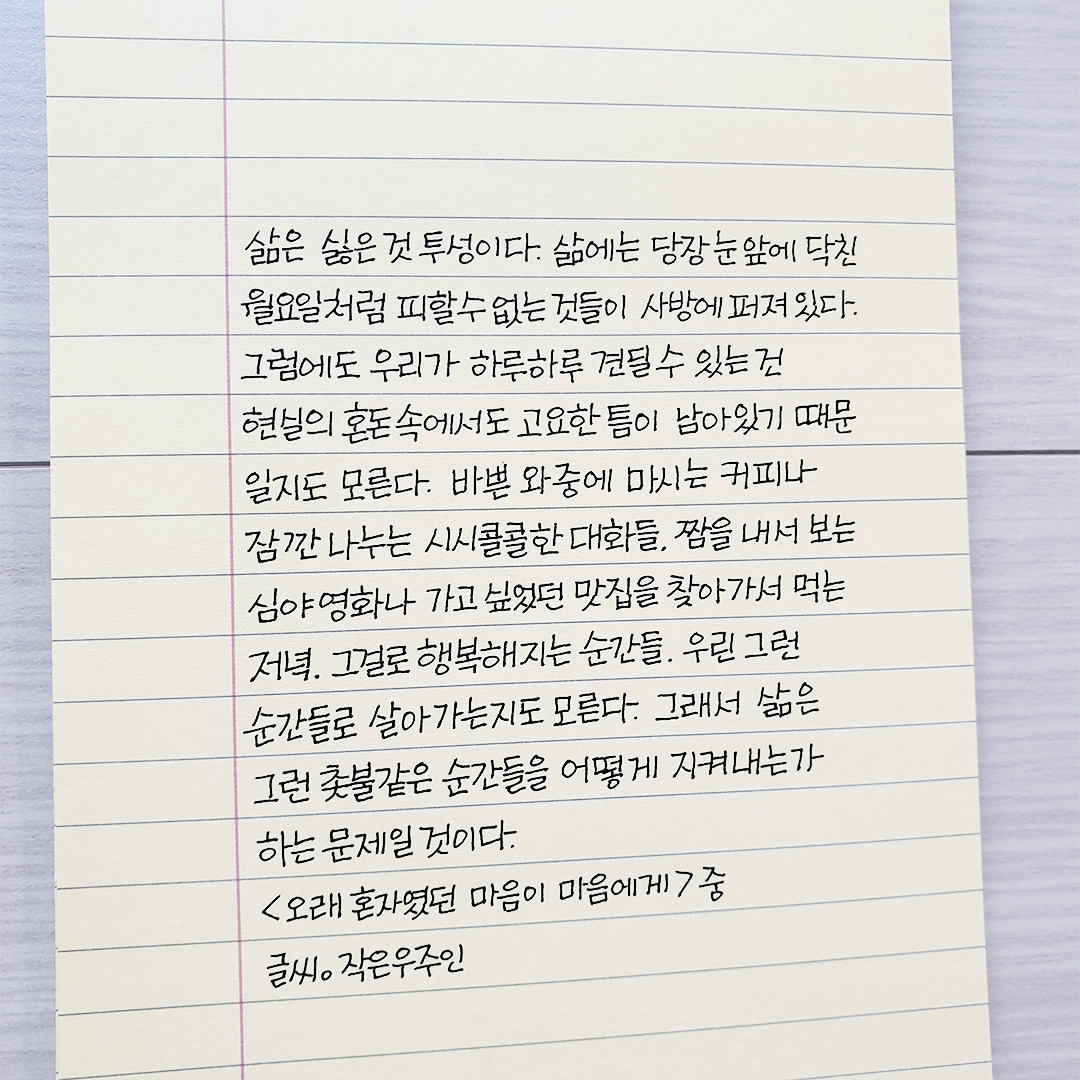 삶은 싫은 것 투성이다. 삶에는 당장 눈 앞에 닥친
월요일처럼 피할 수 없는 것들이 사방에 퍼져 있다.
그럼에도 우리가 하루하루 견딜 수 있는 건
현실의 혼돈 속에서도 고요한 틈이 남아있기 때문
일지도 모른다. 바쁜 와중에 마시는 커피나
잠깐 나누는 시시콜콜한 대화들. 짬을 내서 보는
심야 영화나 가고 싶었던 맛집을 찾아가서 먹는
저녁. 그걸로 행복해지는 순간들. 우린 그런
순간들로 살아가는지도 모른다. 그래서 삶은
그런 촛불같은 순간들을 어떻게 지켜내는가
하는 문제일 것이다.
<오래 혼자였던 마음이 마음에게> 중
글씨。작은우주인